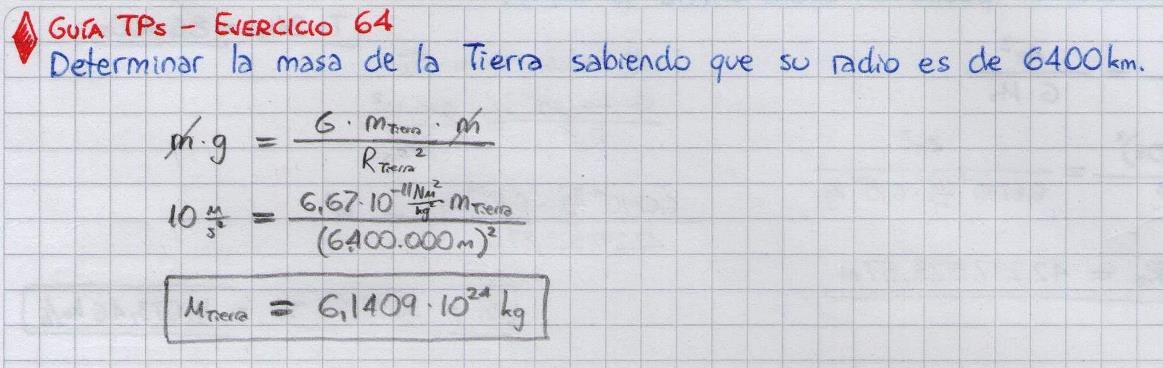 GUÍA TPs - EJERCICIO 64
Determinar la masa de la Tierra sabiendo que su radio es de 6400 km.
m · g = G · mTierra · m / RTierra²
10 m/s² = 6,67·10⁻¹¹ Nm²/kg² mTierra / (6400.000m)²
MTierra = 6,1409 · 10²⁴ kg